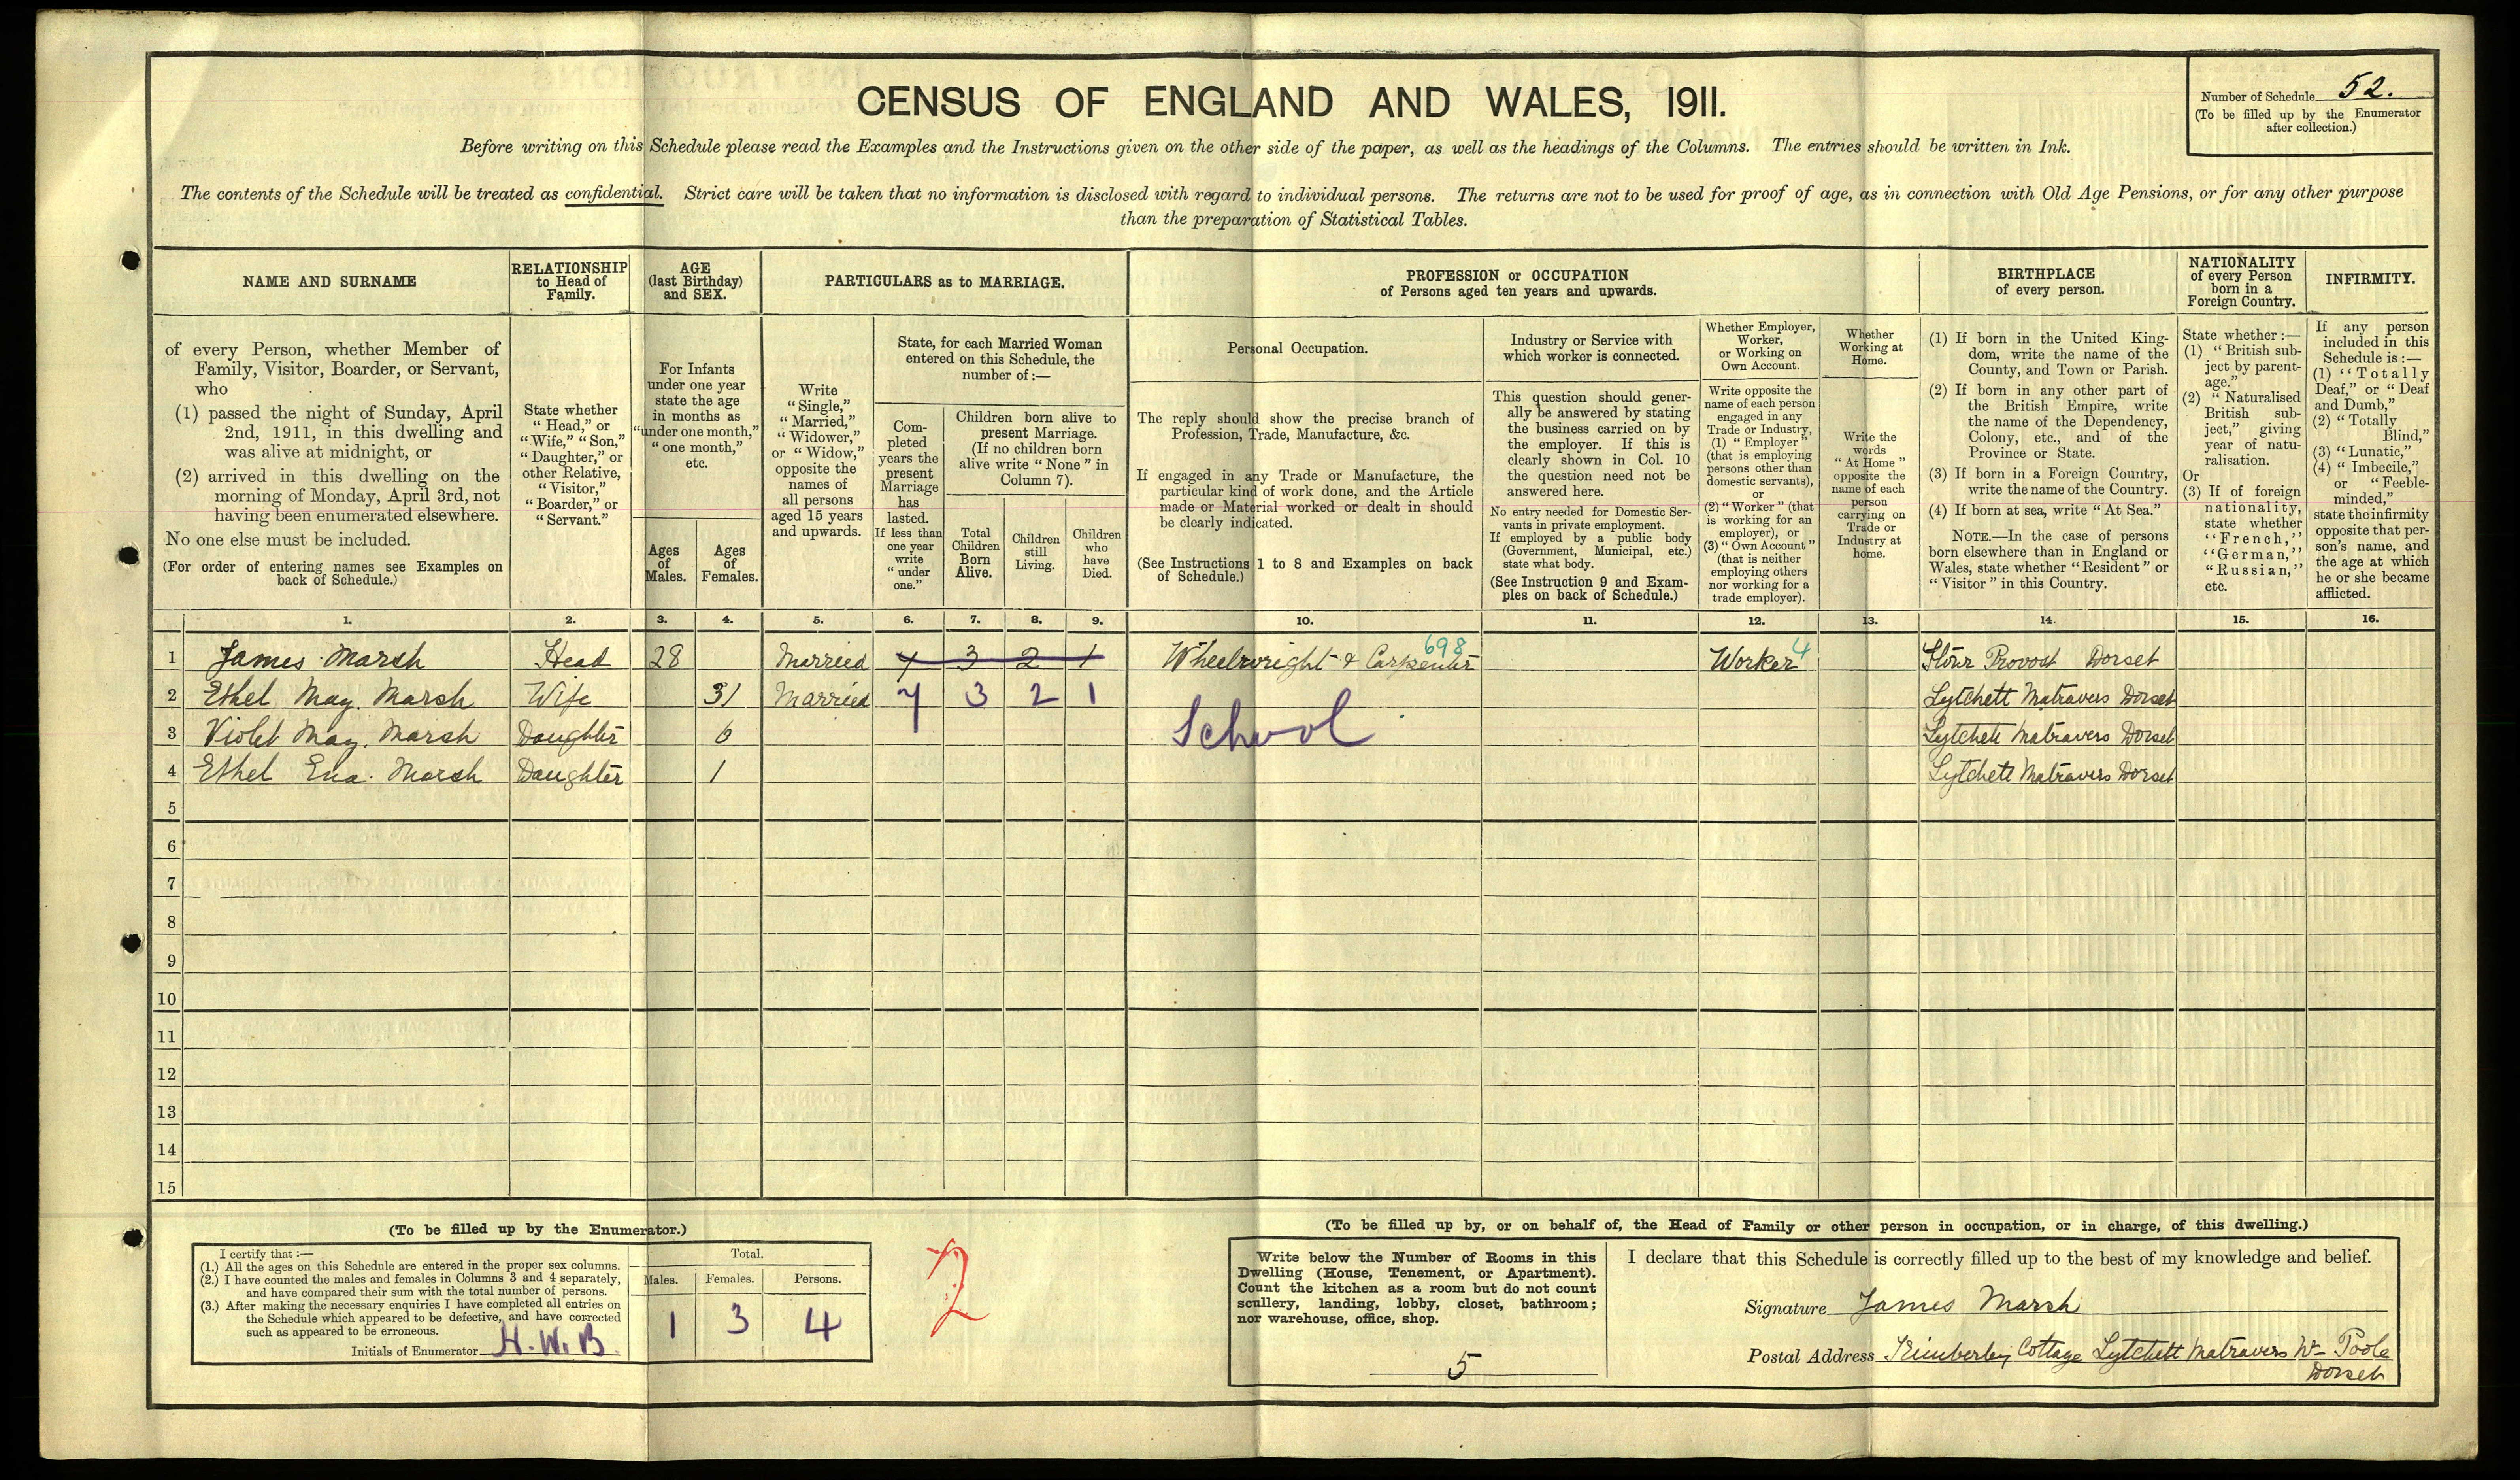 CENSUS OF ENGLAND AND WALES, 1911.
Number of Schedule 52.
(To be filled up by the Enumerator
after collection.)
Before writing on this Schedule please read the Examples and the Instructions given on the other side of the paper, as well as the headings of the Columns. The entries should be written in Ink.
The contents of the Schedule will be treated as confidential. Strict care will be taken that no information is disclosed with regard to individual persons. The returns are not to be used for proof of age, as in connection with Old Age Pensions, or for any other purpose
than the preparation of Statistical Tables.
NAME AND SURNAME
of every Person, whether Member of
Family, Visitor, Boarder, or Servant,
who
(1) passed the night of Sunday, April
2nd, 1911, in this dwelling and
was alive at midnight, or
(2) arrived in this dwelling on the
morning of Monday, April 3rd, not
having been enumerated elsewhere.
No one else must be included.
(For order of entering names see Examples on
back of Schedule.)
RELATIONSHIP
to Head of
Family.
State whether
"Head," or
"Wife," "Son,"
"Daughter," or
other Relative,
"Visitor,"
"Boarder," or
"Servant."
AGE
(last Birthday)
and SEX.
For Infants
under one year
state the age
in months as
"under one month,"
"one month,"
etc.
Ages
of
Males.
Ages
of
Females.
PARTICULARS as to MARRIAGE.
Write
"Single,"
"Married,"
"Widower,"
or "Widow,"
opposite the
names of
all persons
aged 15 years
and upwards.
State, for each Married Woman
entered on this Schedule, the
number of :—
Com-
pleted
years the
present
Marriage
has
lasted.
If less than
one year
write
"under
one."
Children born alive to
present Marriage.
(If no children born
alive write "None" in
Column 7).
Total
Children
Born
Alive.
Children
still
Living.
Children
who
have
Died.
PROFESSION or OCCUPATION
of Persons aged ten years and upwards.
Personal Occupation.
The reply should show the precise branch of
Profession, Trade, Manufacture, &c.
If engaged in any Trade or Manufacture, the
particular kind of work done, and the Article
made or Material worked or dealt in should
be clearly indicated.
(See Instructions 1 to 8 and Examples on back
of Schedule.)
Industry or Service with
which worker is connected.
This question should gener-
ally be answered by stating
the business carried on by
the employer. If this is
clearly shown in Col. 10
the question need not be
answered here.
No entry needed for Domestic Ser-
vants in private employment.
If employed by a public body
(Government, Municipal, etc.)
state what body.
(See Instruction 9 and Exam-
ples on back of Schedule.)
Whether Employer,
Worker,
or Working on
Own Account.
Write opposite the
name of each person
engaged in any
Trade or Industry,
(1) "Employer"
(that is employing
persons other than
domestic servants),
or
(2) "Worker" (that
is working for an
employer), or
(3) "Own Account"
(that is neither
employing others
nor working for a
trade employer).
Whether
Working at
Home.
Write the
words
"At Home"
opposite the
name of each
person
carrying on
Trade or
Industry at
home.
BIRTHPLACE
of every person.
(1) If born in the United King-
dom, write the name of the
County, and Town or Parish.
(2) If born in any other part of
the British Empire, write
the name of the Dependency,
Colony, etc., and of the
Province or State.
(3) If born in a Foreign Country,
write the name of the Country.
(4) If born at sea, write "At Sea."
NOTE.—In the case of persons
born elsewhere than in England or
Wales, state whether "Resident" or
"Visitor" in this Country.
NATIONALITY
of every Person
born in a
Foreign Country.
State whether :—
(1) "British sub-
ject by parent-
age."
(2) "Naturalised
British sub-
ject," giving
year of natu-
ralisation.
Or
(3) If of foreign
nationality,
state whether
"French,"
"German,"
"Russian,"
etc.
INFIRMITY.
If any person
included in this
Schedule is :—
(1) "Totally
Deaf," or "Deaf
and Dumb,"
(2) "Totally
Blind,"
(3) "Lunatic,"
(4) "Imbecile,"
or "Feeble-
minded,"
state the infirmity
opposite that per-
son's name, and
the age at which
he or she became
afflicted.
1. 2. 3. 4. 5. 6. 7. 8. 9. 10. 11. 12. 13. 14. 15. 16.
1 James Marsh Head 28 Married 7 3 2 1 Wheelwright & Carpenter 698 Worker 4 Stour Provost Dorset
2 Ethel May Marsh Wife 31 Married 7 3 2 1 Lytchett Matravers Dorset
3 Violet May Marsh Daughter 6 School Lytchett Matravers Dorset
4 Ethel Ena Marsh Daughter 1 Lytchett Matravers Dorset
5
6
7
8
9
10
11
12
13
14
15
(To be filled up by the Enumerator.)
I certify that :—
(1.) All the ages on this Schedule are entered in the proper sex columns.
(2.) I have counted the males and females in Columns 3 and 4 separately,
and have compared their sum with the total number of persons.
(3.) After making the necessary enquiries I have completed all entries on
the Schedule which appeared to be defective, and have corrected
such as appeared to be erroneous.
Initials of Enumerator H.W.B.
Total.
Males. Females. Persons.
1 3 4
2
(To be filled up by, or on behalf of, the Head of Family or other person in occupation, or in charge, of this dwelling.)
Write below the Number of Rooms in this
Dwelling (House, Tenement, or Apartment).
Count the kitchen as a room but do not count
scullery, landing, lobby, closet, bathroom;
nor warehouse, office, shop.
5
I declare that this Schedule is correctly filled up to the best of my knowledge and belief.
Signature James Marsh
Postal Address Kimberley Cottage Lytchett Matravers Nr Poole
Dorset